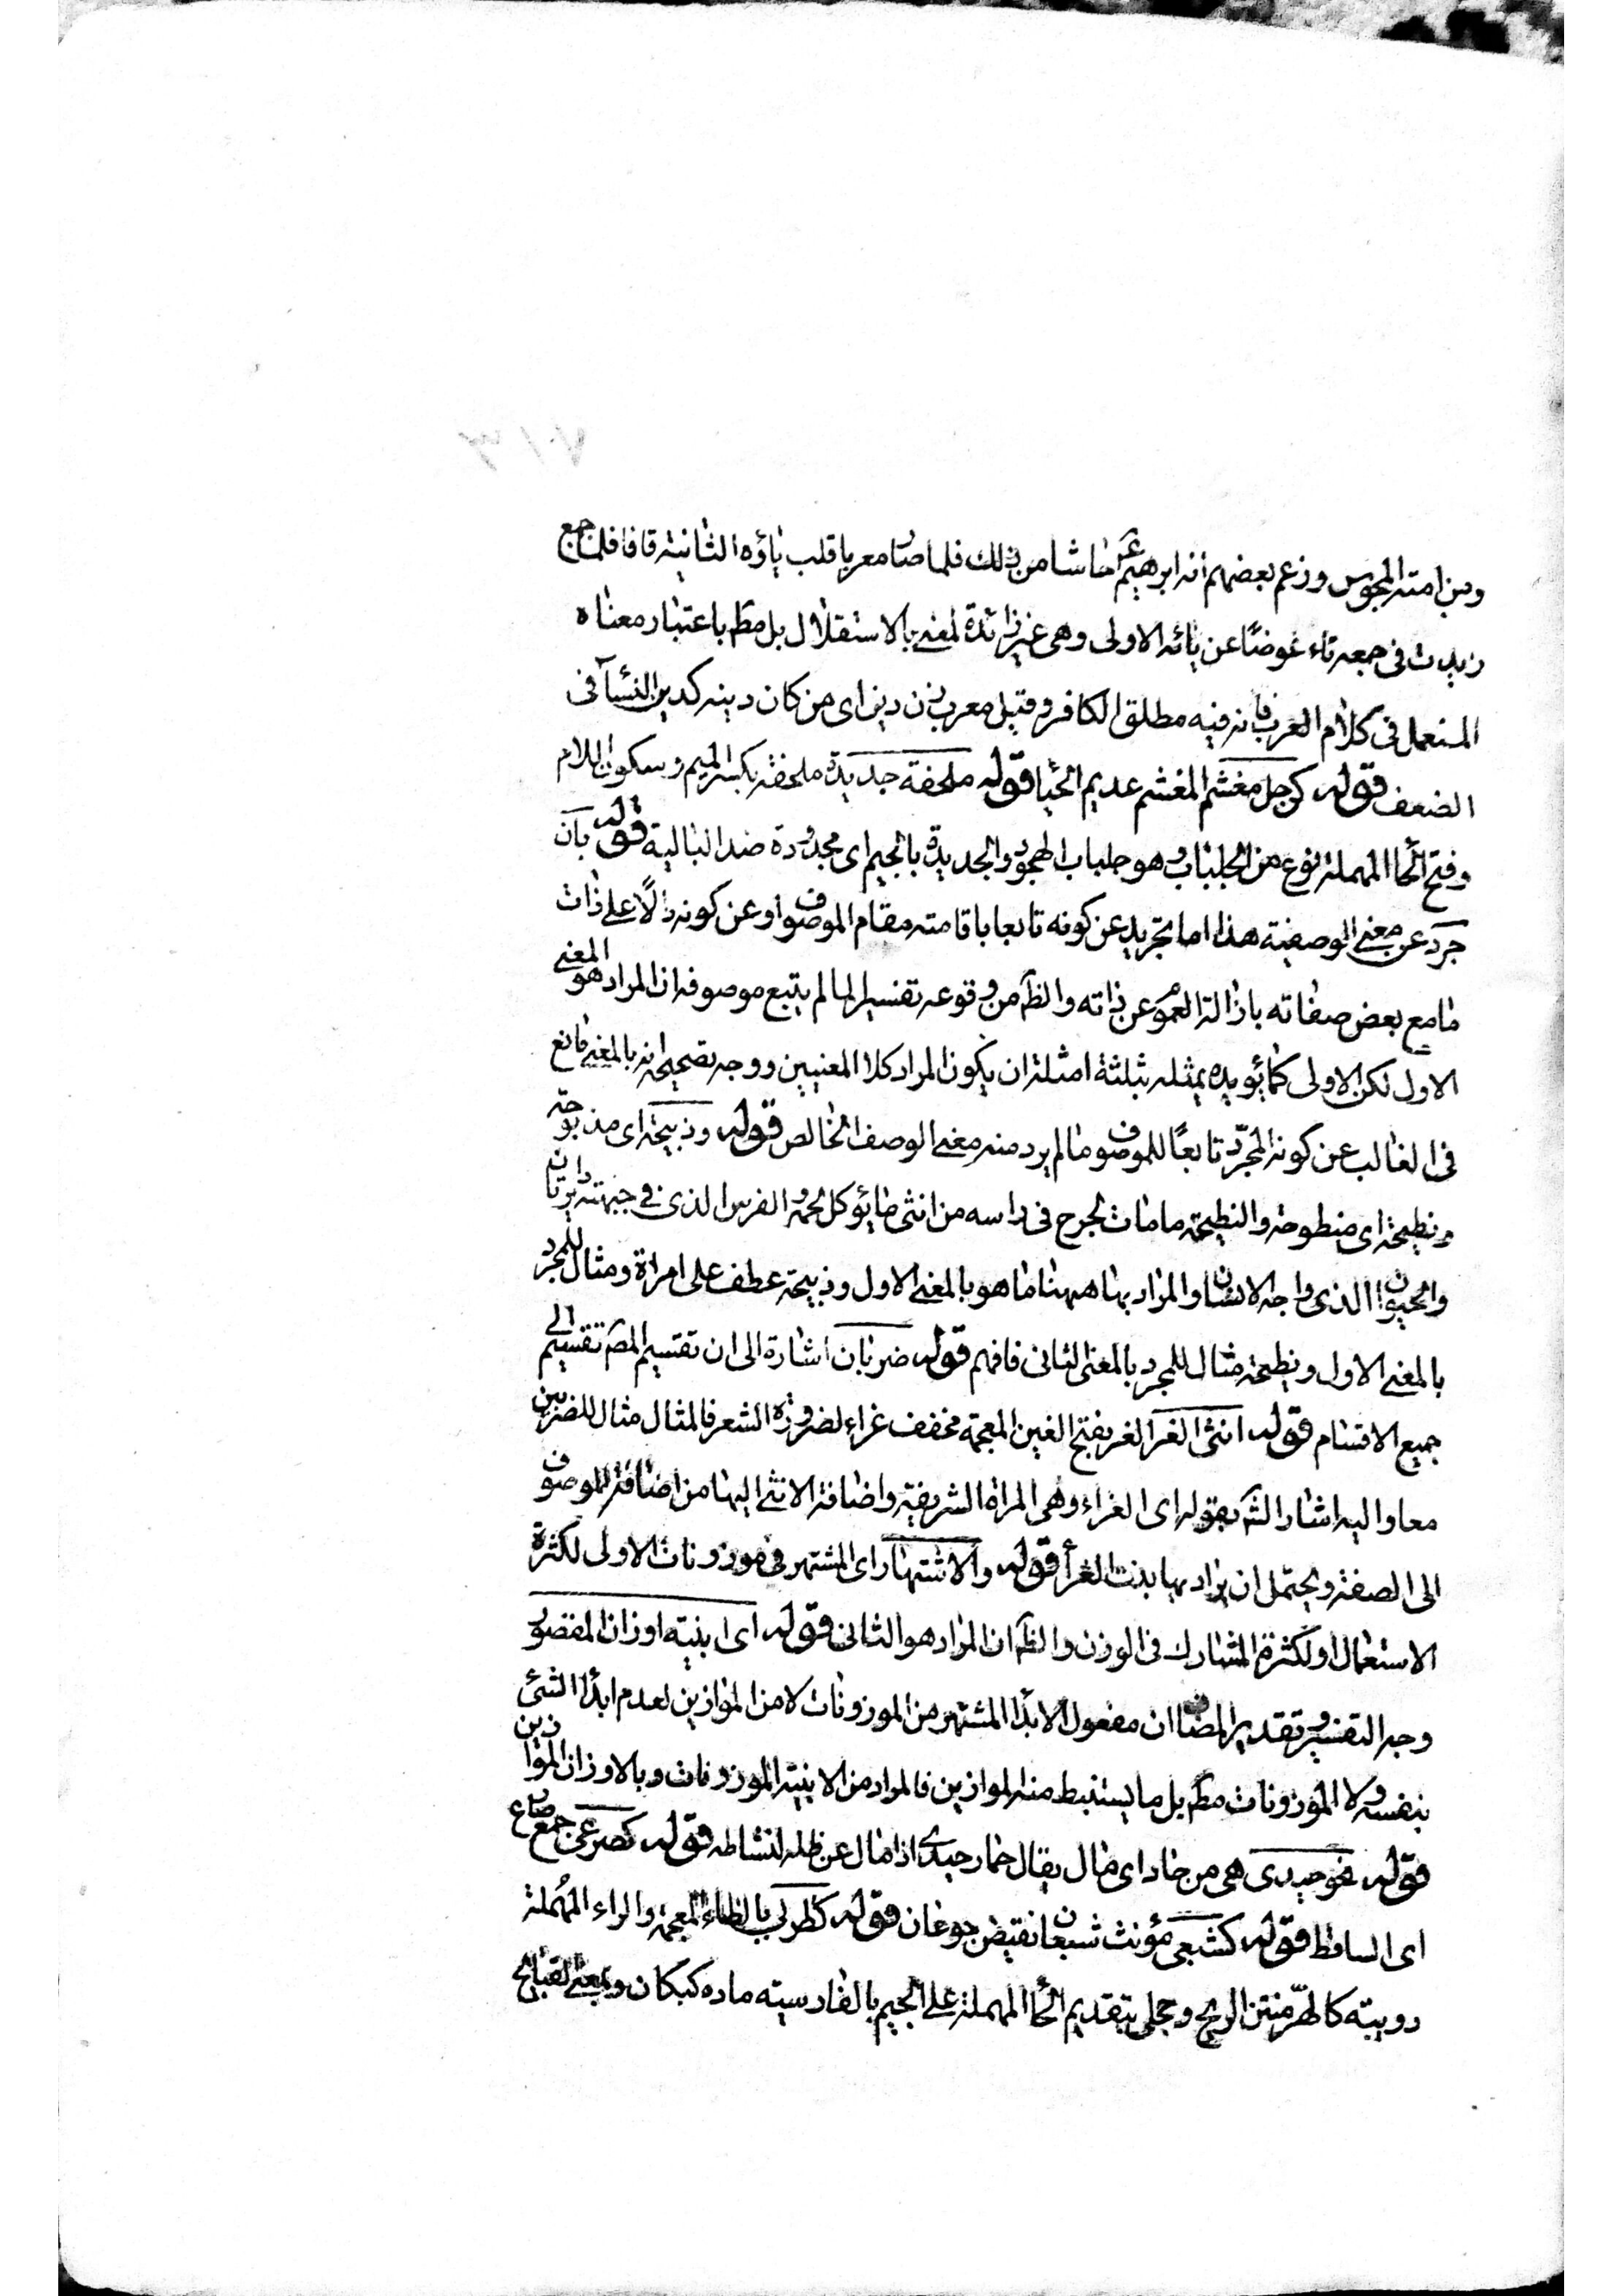 ومن امته المجوس وزعم بعضهم انه ابرهيم عم حاشا من ذلك فلما صار معربا قلب ياؤه الثانية قافا فلما جمع
زيدت فى جمعه تاء عوضًا عن يائه الاولى وهى غير زائدة لمعنى بالاستقلال بل مط باعتبار معناه
المستعمل فى كلام العرب فانه فيه مطلق الكافر وقيل معرب زن دين اى من كان دينه كدين النساء فى
الضعف قوله كرجل مغشم المغشم عديم الحيا قوله ملحفة جديدة ملحفة بكسر الميم وسكون اللام
وفتح الحا المهملة نوع من الجلباب وهو جلباب الهجود والجديدة بالجيم اى مجدودة ضد البالية قوله بان
جرد عن معنى الوصفية هذا اما تجريد عن كونه تابعا باقامته مقام الموصوف او عن كونه دالًا على ذات
ما مع بعض صفاته بازالة العموم عن ذاته والظ من وقوعه تفسيرا لما لم يتبع موصوفه ان المراد هو المعنى
الاول لكن الاولى كما يؤيده يمثله بثلثة امثلة ان يكون المراد كلا المعنيين ووجه تصحيحه انه بالمعنى مانع
فى الغالب عن كونه المجرّد تابعًا للموصوف ما لم يرد منه معنى الوصف الخالص قوله وذبيحة اى مذبوحة
ونطيحة اى منطوحة والنطيحة ما مات لجرح فى راسه من انثى ما يؤكل لحمه و الفرس الذى فى جبهته دايرتان
والحيوان الذى واجه الانسان والمراد بها ههنا ما هو بالمعنى الاول وذبيحة عطف على امراة ومثال للمجرد
بالمعنى الاول ونطيحة مثال للمجرد بالمعنى الثانى فافهم قوله ضربان اشارة الى ان تقسيم المص تقسيم الى
جميع الاقسام قوله انثى الغر الغر بفتح الغين المعجمة مخفف غراء لضرورة الشعر فالمثال مثال للضربين
معا واليه اشار الش بقوله اى الغراء وهى المراة الشريفة واضافة الانثى اليها من اضافة الموصوف
الى الصفة ويحتمل ان يراد بها بنت الغرأ قوله والاشتهار اى المشتهر فى موزونات الاولى لكثرة
الاستعمال او لكثرة المشارك فى الوزن والظ ان المراد هو الثانى قوله اى ابنية اوزان المقصور
وجه التفسير وتقدير المضاف ان مفعول الابدا المشتهر من الموزونات لا من الموازين لعدم ابدأ الشئ
بنفسه ولا الموزونات مط بل ما يستنبط منه الموازين فالمراد من الابنية الموزونات وبالاوزان الموازين
قوله نحو حيدى هى من حاد اى مال يقال حمار حيدى اذا مال عن ظله لنشاطه قوله كصرعى جمع صريع
اى الساقط قوله كشبعى مؤنث شبعان نقيض جوعان قوله كظربى بالظاء المعجمة والراء المهملة
دويبة كالهرّ منتن الريح وحجلى بتقديم الحا المهملة على الجيم بالفارسية ماده كبكان وبمعنى القبائح